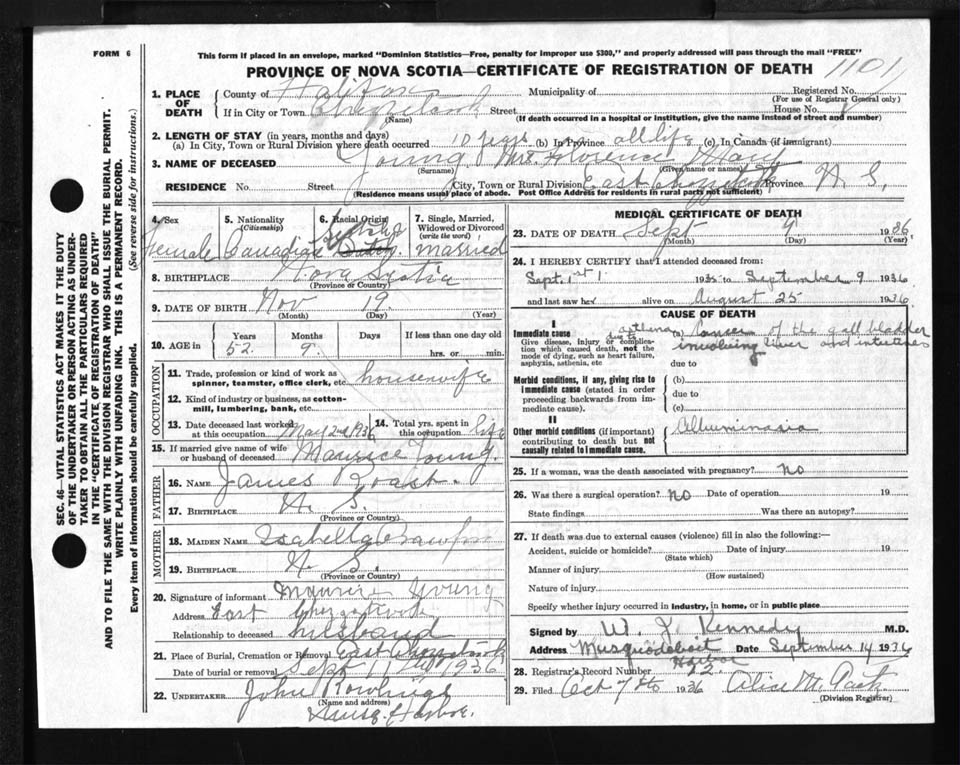 FORM 6
This form if placed in an envelope, marked "Dominion Statistics—Free, penalty for improper use $300," and properly addressed will pass through the mail "FREE"
PROVINCE OF NOVA SCOTIA—CERTIFICATE OF REGISTRATION OF DEATH 1101
SEC. 46—VITAL STATISTICS ACT MAKES IT THE DUTY
OF THE UNDERTAKER OR PERSON ACTING AS UNDER-
TAKER TO OBTAIN ALL THE PARTICULARS REQUIRED
IN THE "CERTIFICATE OF REGISTRATION OF DEATH"
AND TO FILE THE SAME WITH THE DIVISION REGISTRAR WHO SHALL ISSUE THE BURIAL PERMIT.
WRITE PLAINLY WITH UNFADING INK. THIS IS A PERMANENT RECORD.
Every item of information should be carefully supplied. (See reverse side for instructions.)
1. PLACE OF DEATH
County of Halifax Municipality of Registered No.
(For use of Registrar General only)
If in City or Town Street House No.
(Name) (If death occurred in a hospital or institution, give the name instead of street and number)
2. LENGTH OF STAY (in years, months and days)
(a) In City, Town or Rural Division where death occurred 10 years (b) In Province all life (c) In Canada (if immigrant)
3. NAME OF DECEASED Young Mrs. Florence May
(Surname) (Given name or names)
RESIDENCE No. Street City, Town or Rural Division East Province N. S.
(Residence means usual place of abode. Post Office Address for residents in rural parts not sufficient)
4. Sex Female
5. Nationality (Citizenship) Canadian
6. Racial Origin
7. Single, Married, Widowed or Divorced (write the word) married
8. BIRTHPLACE Nova Scotia
(Province or Country)
9. DATE OF BIRTH Nov 19
(Month) (Day) (Year)
10. AGE in Years 52 Months 9 Days If less than one day old hrs. or min.
OCCUPATION
11. Trade, profession or kind of work as spinner, teamster, office clerk, etc. housewife
12. Kind of industry or business, as cotton-mill, lumbering, bank, etc.
13. Date deceased last worked at this occupation May 2nd 1936
14. Total yrs. spent in this occupation life
15. If married give name of wife or husband of deceased Maurice Young.
FATHER
16. NAME James Roast.
17. BIRTHPLACE N. S.
(Province or Country)
MOTHER
18. MAIDEN NAME Isabella
19. BIRTHPLACE N. S.
(Province or Country)
20. Signature of informant Maurice Young
Address East
Relationship to deceased husband
21. Place of Burial, Cremation or Removal East
Date of burial or removal Sept 1936
22. UNDERTAKER John Rowlings
(Name and address)
MEDICAL CERTIFICATE OF DEATH
23. DATE OF DEATH Sept 9 1936
(Month) (Day) (Year)
24. I HEREBY CERTIFY that I attended deceased from
Sept. 1st 1935 to September 9 1936
and last saw her alive on August 25 1936
CAUSE OF DEATH
I
Immediate cause
Give disease, injury or complication which caused death, not the mode of dying, such as heart failure, asphyxia, asthenia, etc
asthenia
due to
(a) Cancer of the gall bladder
involving liver and intestines
due to
Morbid conditions, if any, giving rise to immediate cause (stated in order proceeding backwards from immediate cause).
(b)
due to
(c)
II
Other morbid conditions (if important) contributing to death but not causally related to immediate cause.
25. If a woman, was the death associated with pregnancy? no
26. Was there a surgical operation? no Date of operation 19
State findings Was there an autopsy?
27. If death was due to external causes (violence) fill in also the following:—
Accident, suicide or homicide? Date of injury 19
(State which)
Manner of injury
(How sustained)
Nature of injury
Specify whether injury occurred in industry, in home, or in public place
Signed by W. J. Kennedy M.D.
Address Musquodoboit Harbor Date September 14 1936
28. Registrar's Record Number 12.
29. Filed Oct 7th 1936 Alice M.
(Division Registrar)